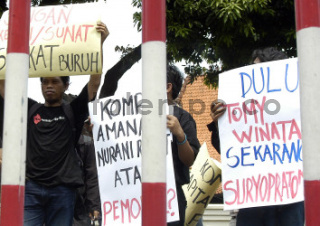 SUNAT
KAT BURUH
KOMP
AMANA
NURANI R
ATA
PEMO
?
DULU
TOMY
WINATA
SEKARANG
SURYOPRATOM